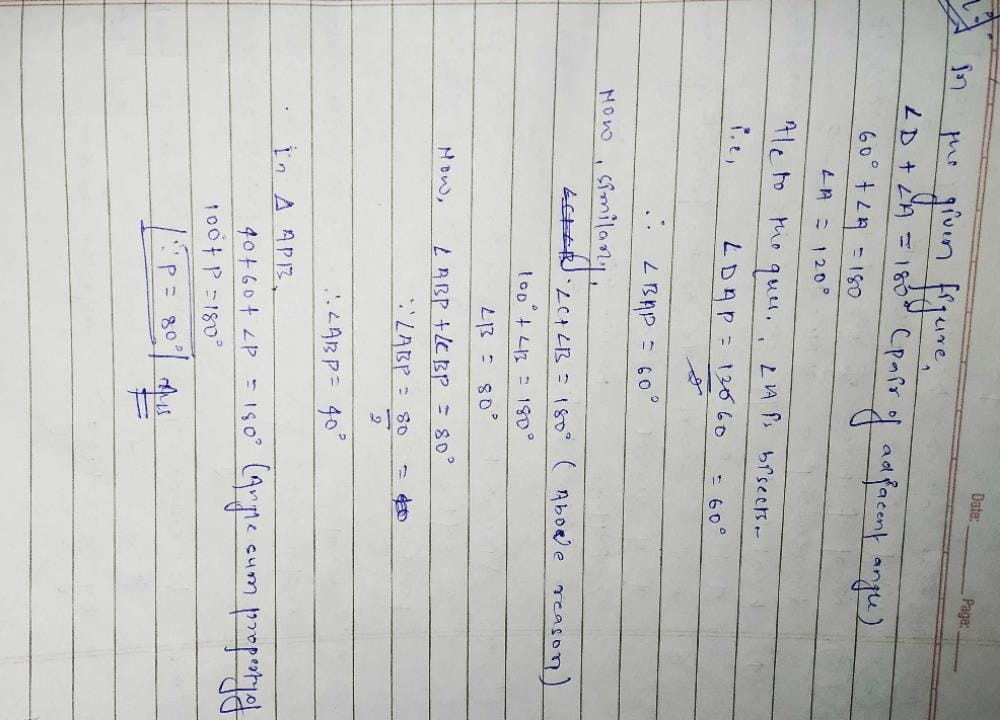 Date:
Page:
In the given figure,
∠D + ∠A = 180° (Pair of adjacent angle)
60° + ∠A = 180
∠A = 120°
A/c to the que, ∠A is bisects.
i.e, ∠DAP = 120/2 60 = 60°
∴ ∠BAP = 60°
Now, similarly,
∠C+∠B ∠C+∠B = 180° (Above reason)
100° + ∠B = 180°
∠B = 80°
Now, ∠ABP + ∠CBP = 80°
∴ ∠ABP = 80/2 = 40
∴ ∠ABP = 40°
In Δ APB,
40 + 60 + ∠P = 180° (Angle sum property of
100° + P = 180°
∴ P = 80° Ans